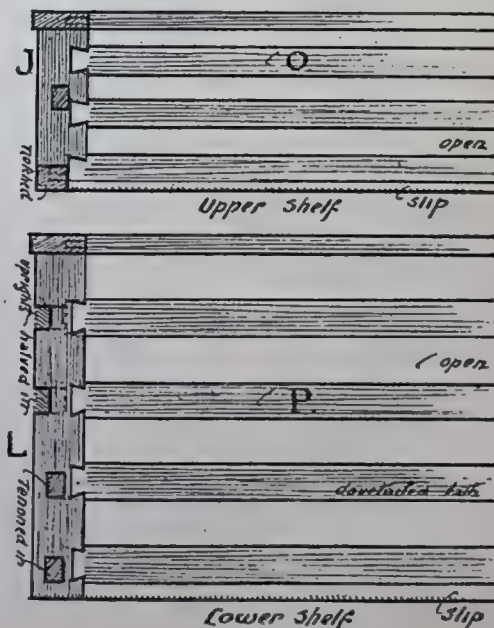 J
O
open
notched
Upper Shelf
slip
uprights halved in
open
P.
L
Tenoned in
dovetailed lath
Lower Shelf
slip